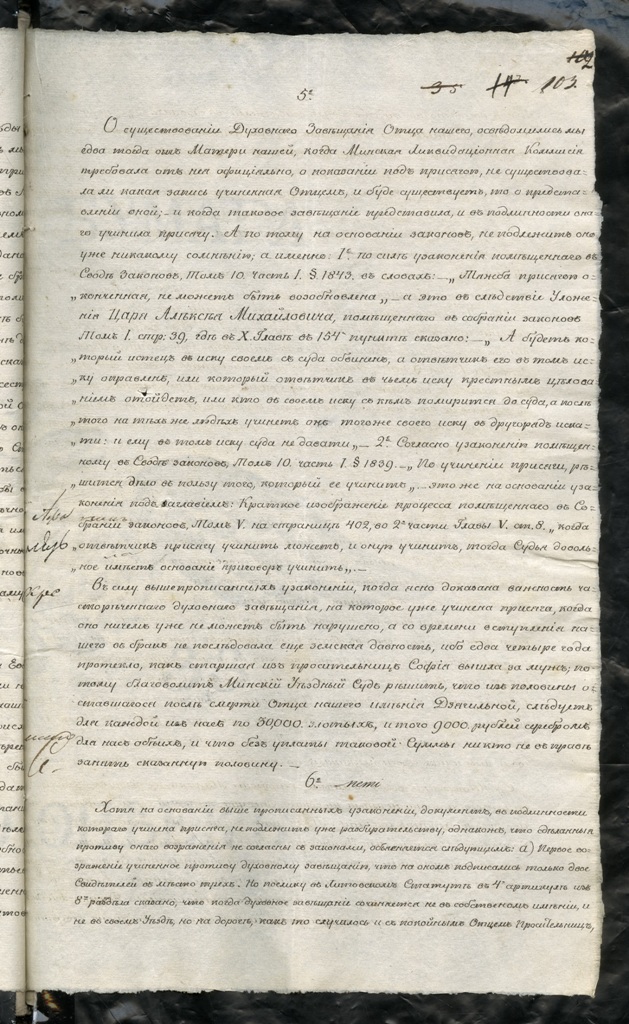 102
35 117 103.
5е
О существованіи Духовнаго Завѣщанія Отца нашего, освѣдомились мы
едва тогда отъ Матери нашей, когда Минская Ликвидаціонная Коммисія
требовала отъ нея официально, о показаніи подъ присягою, не существова-
ла ли какая запись учиненная Отцемъ, и буде существуетъ, то о предста-
вленіи оной; – и когда таковое завѣщаніе представила, и въ подлинности она-
го учинила присягу. А по тому на основаніи законовъ, не подлежитъ оно
уже никакому сомнѣнію; а именно: 1е по силѣ узаконенія помѣщеннаго въ
Сводѣ Законовъ, Томъ 10. Часть I. § 1843. въ словахъ: – „ Тяжба присягою о-
„ конченная, не можетъ быть возобновлена „ – а это въ слѣдствіе Уложе-
нія Царя Алексѣя Михайловича, помѣщеннаго въ собраніи законовъ
Томъ I. стр: 39, гдѣ въ X. Главѣ въ 154м пунктѣ сказано: – „ А будетъ ко-
„ торый истецъ въ иску своемъ съ суда обвиненъ, а отвѣтчикъ его въ томъ ис-
„ ку оправленъ, или который отвѣтчикъ въ чьемъ иску крестнымъ цѣлова-
„ ніемъ отойдетъ, или кто въ своемъ иску съ кѣмъ помирится до суда, а послѣ
„ того на тѣхъ же людѣхъ учнетъ онъ тогоже своего иску въ другорядъ иска-
„ ти: и ему въ томъ иску суда не давати „ – 2е Согласно узаконенію помѣщен-
ному въ Сводѣ законовъ, Томъ 10. часть I. § 1839. – „ По учиненіи присяги, рѣ-
„ шится дѣло въ пользу того, который ее учинитъ „ – это же на основаніи уза-
коненія подъ заглавіемъ: Краткое изображеніе процесса помѣщеннаго въ Со-
браніи законовъ, Томъ V. на страницѣ 402, во 2й части Главы V. ст. 8. „ когда
„ отвѣтчикъ присягу учинить можетъ, и оную учинитъ, тогда Судья доволь-
„ ное имѣетъ основаніе приговоръ учинить „ –
Въ силу вышепрописанныхъ узаконеній, когда ясно доказана важность ча-
сторѣченнаго духовнаго завѣщанія, на которое уже учинена присяга, когда
оно ничемъ уже не можетъ быть нарушено, а со времени вступленія на-
шего въ бракъ не послѣдовала еще земская давность, ибо едва четыре года
протекло, какъ старшая изъ просительницъ Софія вышла за мужъ; по-
тому благоволитъ Минскій Уѣздный Судъ рѣшить, что изъ половины о-
ставшагося послѣ смерти Отца нашего имѣнія Дзягильной, слѣдуетъ
для каждой изъ насъ по 30,000. злотыхъ, и того 9000. рублей серебромъ
для насъ обѣихъ, и что безъ уплаты таковой Суммы ни кто не въ правѣ
занять сказанную половину. –
6е
Хотя на основаніи выше прописанныхъ узаконеній, документъ, въ подлинности
котораго учинена присяга, не подлежитъ уже разбирательству, однакожъ, что сдѣланныя
противу онаго возраженія не согласны съ законами, объясняется слѣдующимъ: а) Первое во-
зраженіе учиненное противу духовному завѣщанію, что на ономъ подписались только двое
Свидѣтелей въ мѣсто трехъ. Но поелику въ Литовскомъ Статутѣ въ 4м артикулѣ изъ
8го раздѣла сказано, что когда духовное завѣщаніе сочиняется не въ собственомъ имѣніи, и
не въ своемъ Уѣздѣ, но на дорогѣ, какъ то случилось и съ покойнымъ Отцемъ Просительницъ,